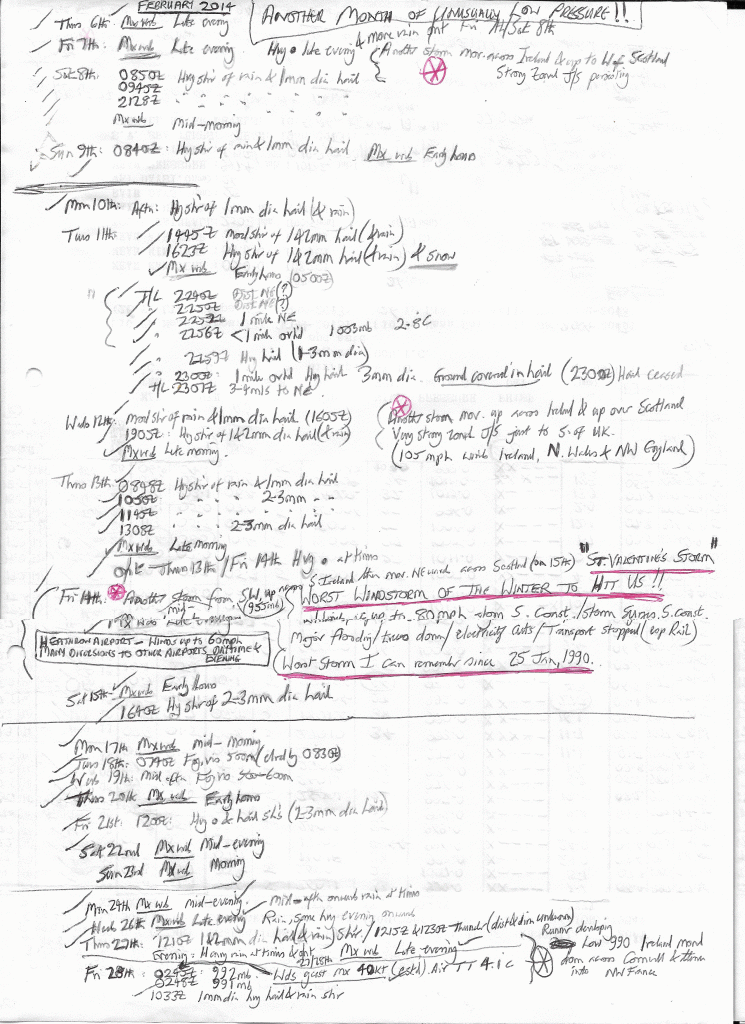 FEBRUARY 2014
ANOTHER MONTH OF UNUSUALLY LOW PRESSURE!!
Thurs 6th: Mx wd Late evening
& more rain ... Fri 7th/Sat 8th
Fri 7th: Mx wd Late evening. Hvy • late evening
Another storm mov. across Ireland & up to W of Scotland
Strong Zonal J/S persisting
Sat 8th: 0850Z Hvy shr of rain & 1mm dia hail
0945Z " " " " "
2128Z " " " " "
Mx wd mid-morning
Sun 9th: 0840Z: Hvy shr of rain & 1mm dia hail Mx wd Early hours
Mon 10th: Aftn: Hvy shr of 1mm dia hail (& rain)
Tues 11th: 1445Z mod shr of 1&2mm hail (& rain)
1623Z Hvy shr of 1&2mm hail (& rain) & snow
Mx wd Early hours (0500Z)
T/L 2240Z Dist NE (?)
" 2250Z Dist NE (?)
" 2252Z 1 mile NE
" 2256Z <1 mile ovhd 1003mb 2.8C
" 2259Z Hvy hail (1-3mm dia)
" 2300Z 1 mile ovhd Hvy hail 3mm dia. Ground covered in hail (2300Z) Hail ceased
T/L 2307Z 3-4 mls to NE.
Weds 12th: Mod shr of rain & 1mm dia hail (1605Z)
1905Z: Hvy shr of 1&2mm dia hail (& rain)
Mx wd Late morning.
Another storm mov. up across Ireland & up over Scotland
Very strong zonal J/S just to S. of UK.
(105 mph winds Ireland, N. Wales & NW England)
Thurs 13th: 0848Z Hvy shr of rain & 1mm dia hail
1050Z " " " " 2-3mm " "
1145Z " " " "
1308Z " " 2-3mm dia hail
Mx wd Late morning
Thurs 13th/Fri 14th Hvy • at times
S Ireland then mov. NE wd across Scotland (on 15th) "ST. VALENTINE'S STORM"
Fri 14th: Another storm from SW. up across (955mb)
WORST WINDSTORM OF THE WINTER TO HIT US!!
up to 80 mph along S. Coast./storm surges S. coast.
HEATHROW AIRPORT - WINDS up to 60mph
MANY DIVERSIONS TO OTHER AIRPORTS DAYTIME &
EVENING
Major flooding/trees down/electricity cuts/Transport stopped (esp Rail)
Worst Storm I can remember since 25 Jan, 1990.
Sat 15th: Mx wd Early hours
1640Z Hvy shr of 2-3mm dia hail
Mon 17th Mx wd mid-morning
Tues 18th: 0740Z Fog, vis 500m (clrd by 0830Z)
Weds 19th: mid aftn Fog vis 500-600m
Thurs 20th Mx wd Early hours
Fri 21st: 1200Z: Hvy • & hail shs (2-3mm dia hail)
Sat 22nd Mx wd Mid-evening
Sun 23rd Mx wd Morning
Mon 24th Mx wd mid-evening. mid-aftn onwards rain at times
Weds 26th Mx wd Late evening. Rain, some hvy evening onwards
Thurs 27th: 1210Z 1&2mm dia hail (& rain) shr. / 1215Z & 1230Z Thunder (dist & dirn unknown)
Evening: Heavy rain at times & 27/28th Mx wd Late evening
Runner developing
Low 990 Ireland moved
down across Cornwall & then
into NW France
Fri 28th: 0245Z: 992mb Wds gust mx 40KT (estd) Air TT 4.1C
0248Z 991mb
1033Z 1mm dia hvy hail & rain shr